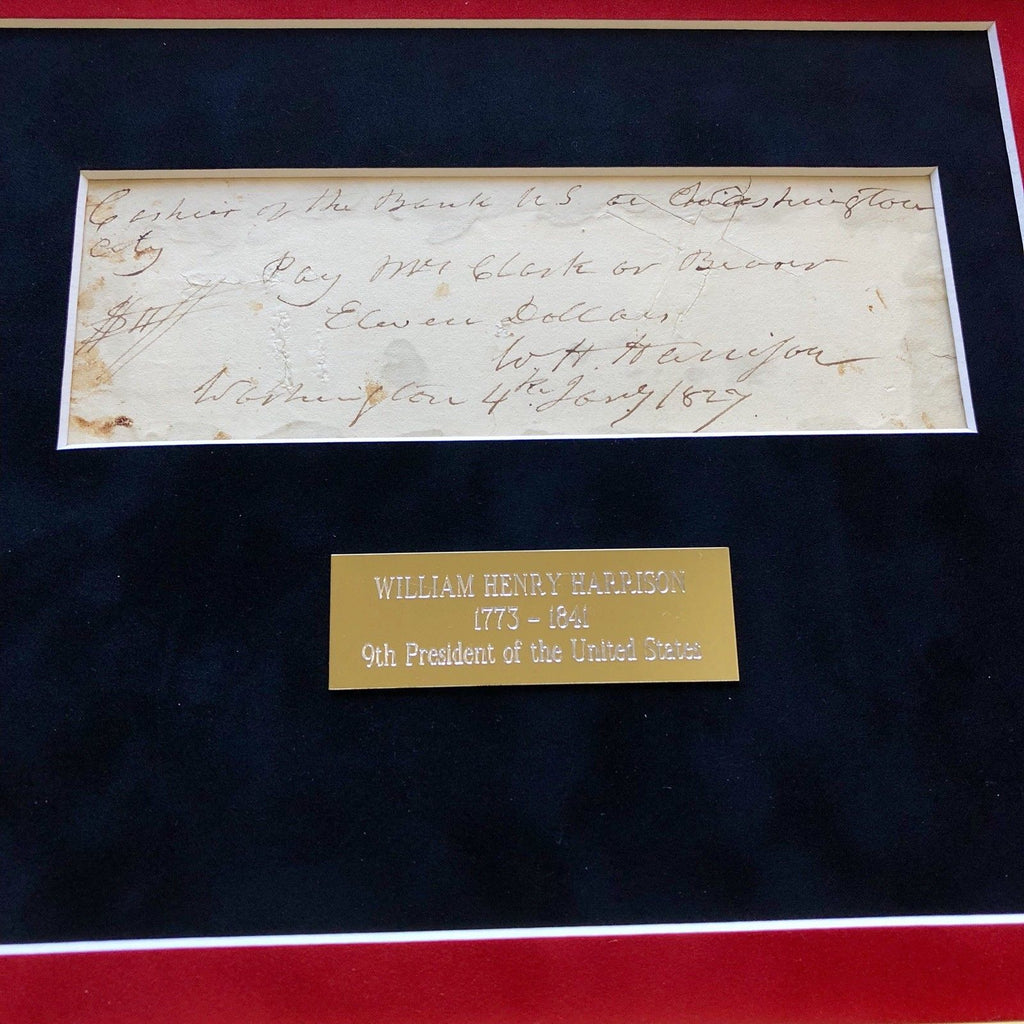 Cashier of the Bank U S at Washington
City
Pay Mr Clark or Bearer
$11
Eleven Dollars
W. H. Harrison
Washington 4th Jany 1827
WILLIAM HENRY HARRISON
1773 - 1841
9th President of the United States